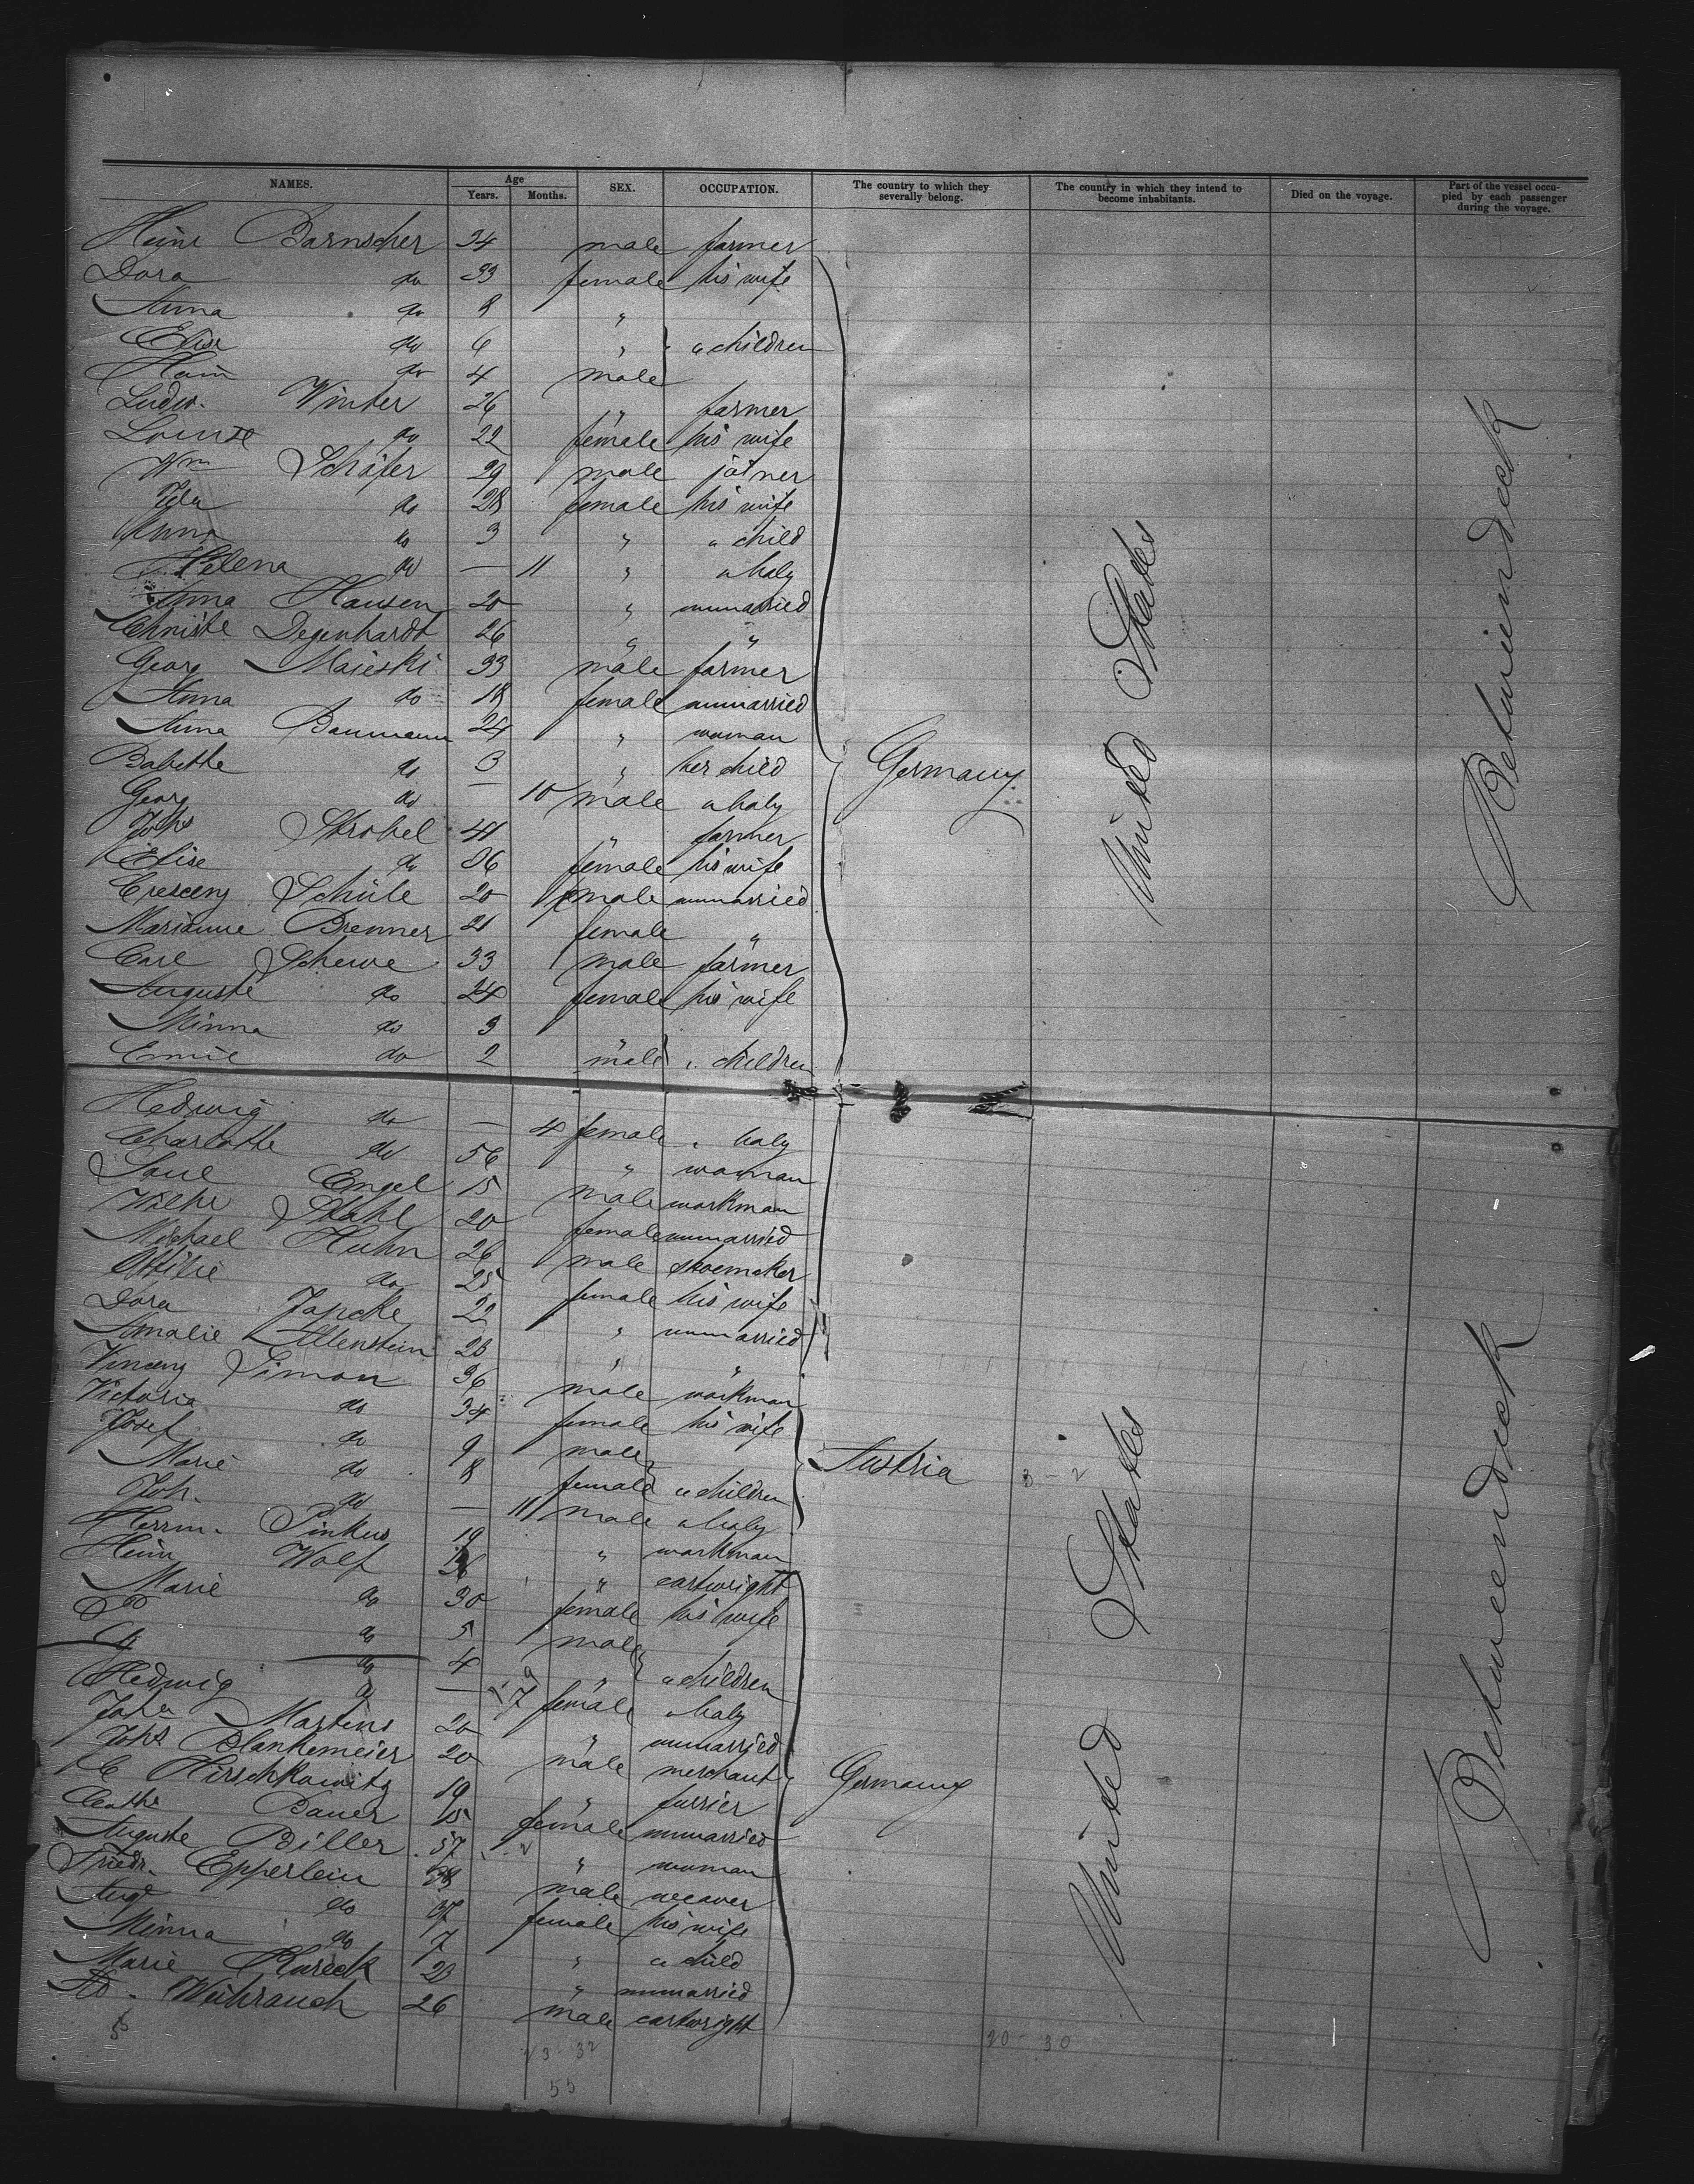 NAMES. Age Years. Months. SEX. OCCUPATION. The country to which they severally belong. The country in which they intend to become inhabitants. Died on the voyage. Part of the vessel occupied by each passenger during the voyage.
Heinr Barnscher 34 male farmer
Dora do 33 female his wife
Anna do 8 "
Elise do 6 " " children
Heinr do 4 male
Ludw. Winter 26 " farmer
Louise do 22 female his wife
Wm Schäfer 29 male joiner
Ida do 28 female his wife
Anna do 3 " " child
Helena do — 11 " " baby
Anna Hansen 20 " unmarried
Christe Degenhardt 26 " "
Georg Maieski 33 male farmer
Anna do 18 female unmarried
Anna Baumann 24 " woman
Babette do 3 " her child
Georg do — 10 male " baby
Johs Strobel 41 " farmer
Elise do 36 female his wife
Crescenz Schüle 20 male unmarried
Marianne Brenner 21 female "
Carl Schewe 33 male farmer
Auguste do 24 female his wife
Minna do 3
Emil do 2 male " children
Germany
United States
Betweendeck
Hedwig do — 4 female " baby
Charlotte do 56 " woman
Paul Engel 15 male workman
Wilhe Stahl 20 female unmarried
Michael Huhn 26 male shoemaker
Ottilie do 25 female his wife
Dora Japcke 22 " unmarried
Amalie Altenstein 23 " "
Vincenz Simon 36 male workman
Victoria do 34 female his wife
Josef do 9 male
Marie do 8 female " children
Joh. do — 11 male " baby
Austria
Herrm. Pinkus 19 " workman
Heinr Wolf " cartwright
Marie do 30 female his wife
do 5 male
do 4 " " children
Hedwig do — 7 female " baby
Joha Martens 20 " unmarried
Johs Blankemeier 20 male merchant
C Hirschkowitz 19 " furrier
Cathe Bauer 15 female unmarried
Auguste Biller 57 " woman
Friedr. Epperlein 38 male weaver
Auge do 37 female his wife
Minna do 7 " " child
Marie Klareck 23 " unmarried
Ad. Weihrauch 26 male cartwright
Germany
United States
Betweendeck
23 32
55
20 30